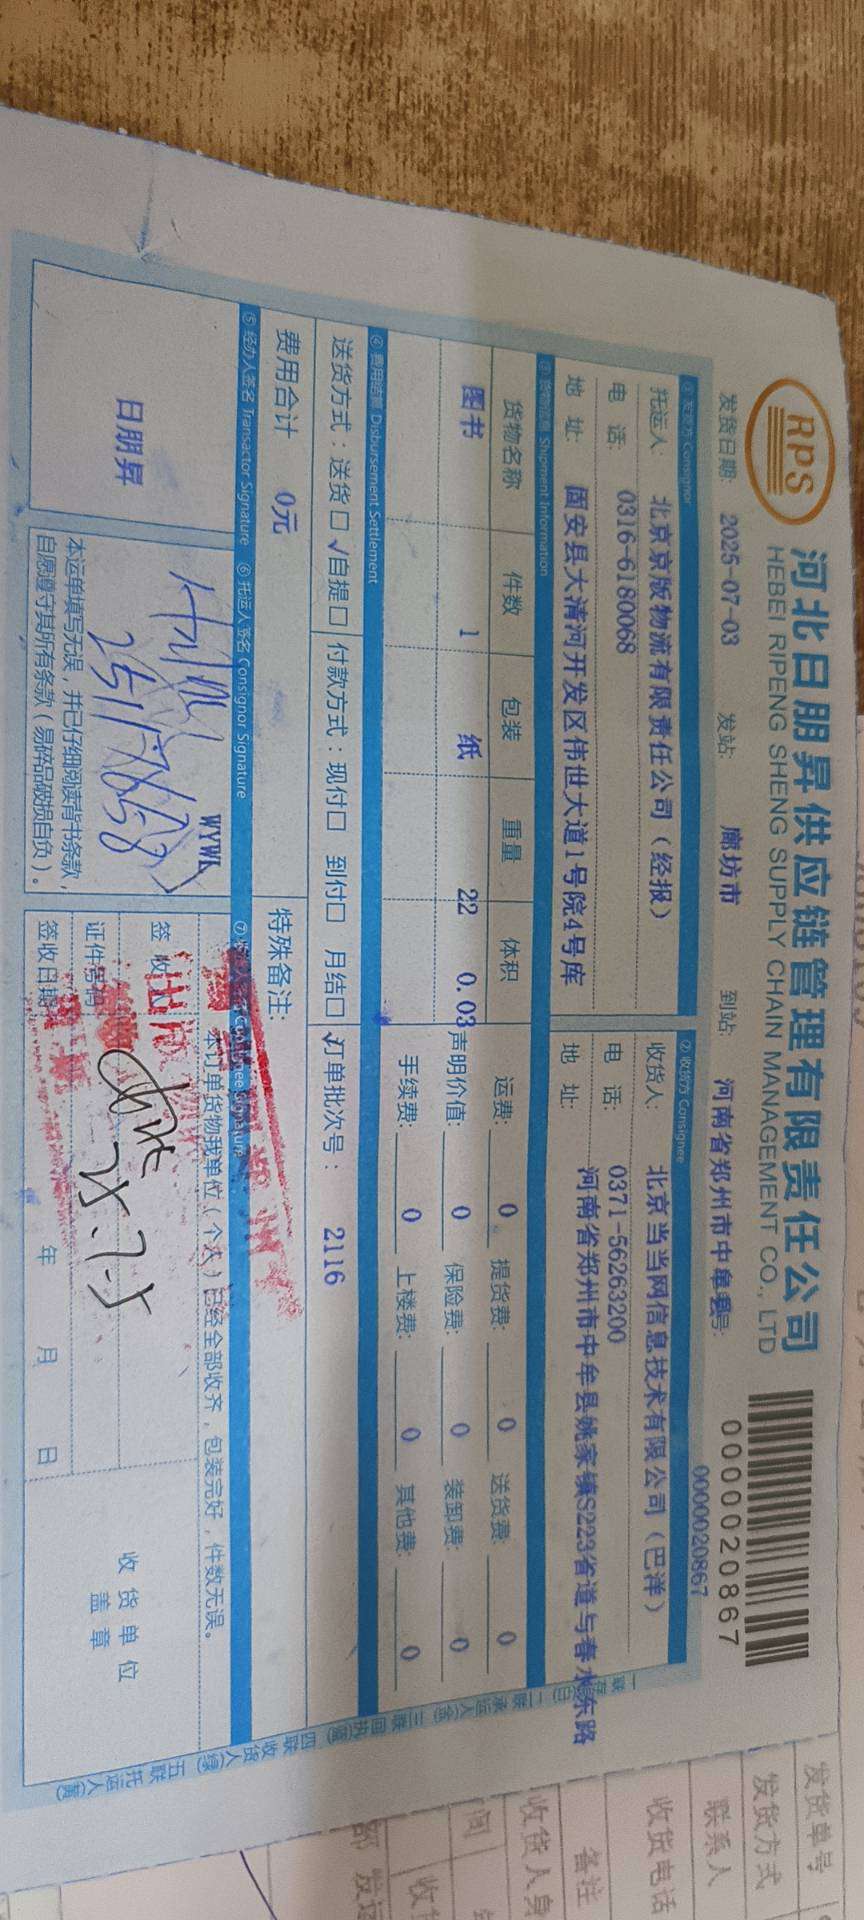 RPS
河北日朋昇供应链管理有限责任公司
HEBEI RIPENG SHENG SUPPLY CHAIN MANAGEMENT CO., LTD
0000020867
0000020867
发货日期: 2025-07-03 发站: 廊坊市 到站: 河南省郑州市中牟县
① 发货方 Consignor
托运人: 北京京版物流有限责任公司(经报)
电 话: 0316-6180068
地 址: 固安县大清河开发区伟世大道1号院4号库
② 收货方 Consignee
收货人: 北京当当网信息技术有限公司(巴洋)
电 话: 0371-56263200
地 址: 河南省郑州市中牟县姚家镇S223省道与春水东路
③ 货物信息 Shipment Information
货物名称 件数 包装 重量 体积
图书 1 纸 22 0.03
运费: 0 提货费: 0 送货费: 0
声明价值: 0 保险费: 0 装卸费: 0
手续费: 0 上楼费: 0 其他费: 0
④ 费用结算 Disbursement Settlement
送货方式:送货□ √自提□ 付款方式:现付□ 到付□ 月结□ √订单批次号: 2116
费用合计 0元 特殊备注:
⑤ 经办人签名 Transactor Signature ⑥ 托运人签名 Consignor Signature
日朋昇
WYWL
本运单填写无误,并已仔细阅读背书条款,
自愿遵守其所有条款(易碎品破损自负)。
Consignee Signature
本订单货物我单位(个人)已经全部收齐,包装完好,件数无误。
签 收
25.7.5
证件号码
签收日期 年 月 日
收 货 单 位
盖 章
发货单号
发货方式
联系人
收货电话
备注
收货人身